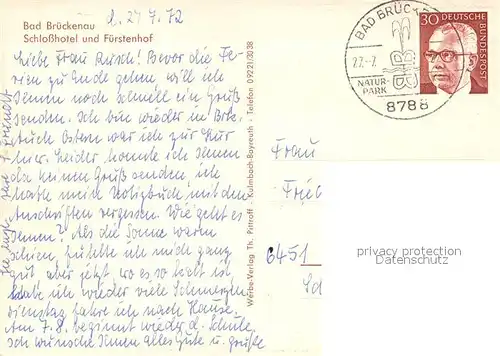 Bad Brückenau
Schloßhotel und Fürstenhof
d. 27 7. 72
Liebe Frau Rusch! Bevor die Fe-
rien zu Ende gehen will ich
Ihnen noch schnell ein Gruß
senden. Ich bin wieder in Brk-
bruck Ostern war ich zur Kur
hier. Leider konnte ich Ihnen
da keinen Gruß senden, ich
hatte mein Notizbuch mit den
Anschriften vergessen. Wie geht es
Ihnen? Als die Sonne warm
schien, fühlte ich mich ganz
gut aber jetzt wo es so kalt ist
habe ich wieder viele Schmerzen
dienstag fahre ich nach Hause.
Am 7.8. beginnt wieder d. Schule.
Ich wünsche Ihnen alles Gute u. Grüße
Werbe-Verlag Th. Pittroff · Kulmbach-Bayreuth · Telefon 09221/3038
BAD BRÜCKE
27.-7.
NATUR-
PARK
8788
30
DEUTSCHE
BUNDESPOST
Frau
Frie
6451
privacy protection
Datenschutz